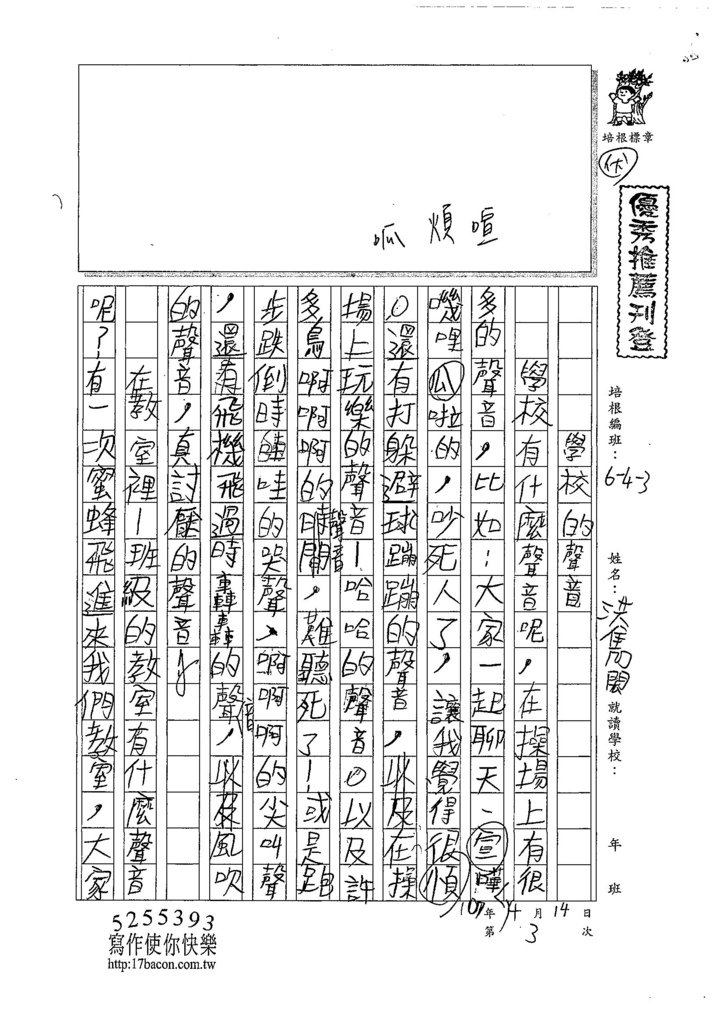 培根標章
優
優秀推薦刊登
培根編班：6-4-3 姓名：洪 就讀學校： 年 班
107年4月14日
第3次
呱 煩 喧
學校的聲音
學校有什麼聲音呢，在操場上有很
多的聲音，比如：大家一起聊天、宣嘩
嘰哩瓜啦的，吵死人了，讓我覺得很煩
。還有打躲避球蹦蹦的聲音，以及在操
場上玩樂的聲音—哈哈的聲音。以及許
多鳥啊啊啊的聲音，難聽死了！或是跑
步跌倒時哇哇的哭聲，啊啊啊的尖叫聲
，還有飛機飛過時轟轟的聲音，以及風吹
的聲音，真討厭的聲音！
在教室裡—班級的教室有什麼聲音
呢？有一次蜜蜂飛進來我們教室，大家
5255393
寫作使你快樂
http:17bacon.com.tw